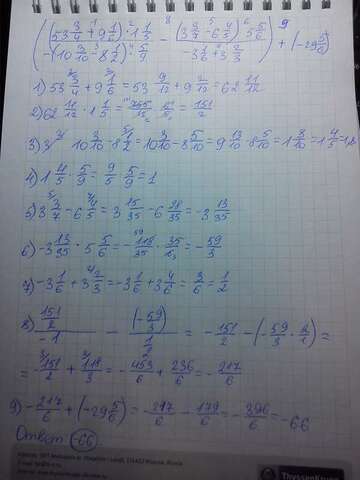 ((53 3/4 + 9 1/6) · 1 1/5 / -(10 3/10 - 8 1/2) · 5/9 - (3 3/7 - 6 4/5) · 5 5/6 / -3 1/6 + 3 2/3) + (-29 5/6)
1) 53 3/4 + 9 1/6 = 53 9/12 + 9 2/12 = 62 11/12
2) 62 11/12 · 1 1/5 = 755/12 · 6/5 = 151/2
3) 10 3/10 - 8 1/2 = 10 3/10 - 8 5/10 = 9 13/10 - 8 5/10 = 1 8/10 = 1 4/5 = 1,8
4) 1 4/5 · 5/9 = 9/5 · 5/9 = 1
5) 3 3/7 - 6 4/5 = 3 15/35 - 6 28/35 = -3 13/35
6) -3 13/35 · 5 5/6 = -118/35 · 35/6 = -59/3
7) -3 1/6 + 3 2/3 = -3 1/6 + 3 4/6 = 3/6 = 1/2
8) 151/2 / -1 - (-59/3) / 1/2 = -151/2 - (-59/3 · 2/1) =
= -151/2 + 118/3 = -453/6 + 236/6 = -217/6
9) -217/6 + (-29 5/6) = -217/6 - 179/6 = -396/6 = -66
Ответ: (-66).
ThyssenKrupp